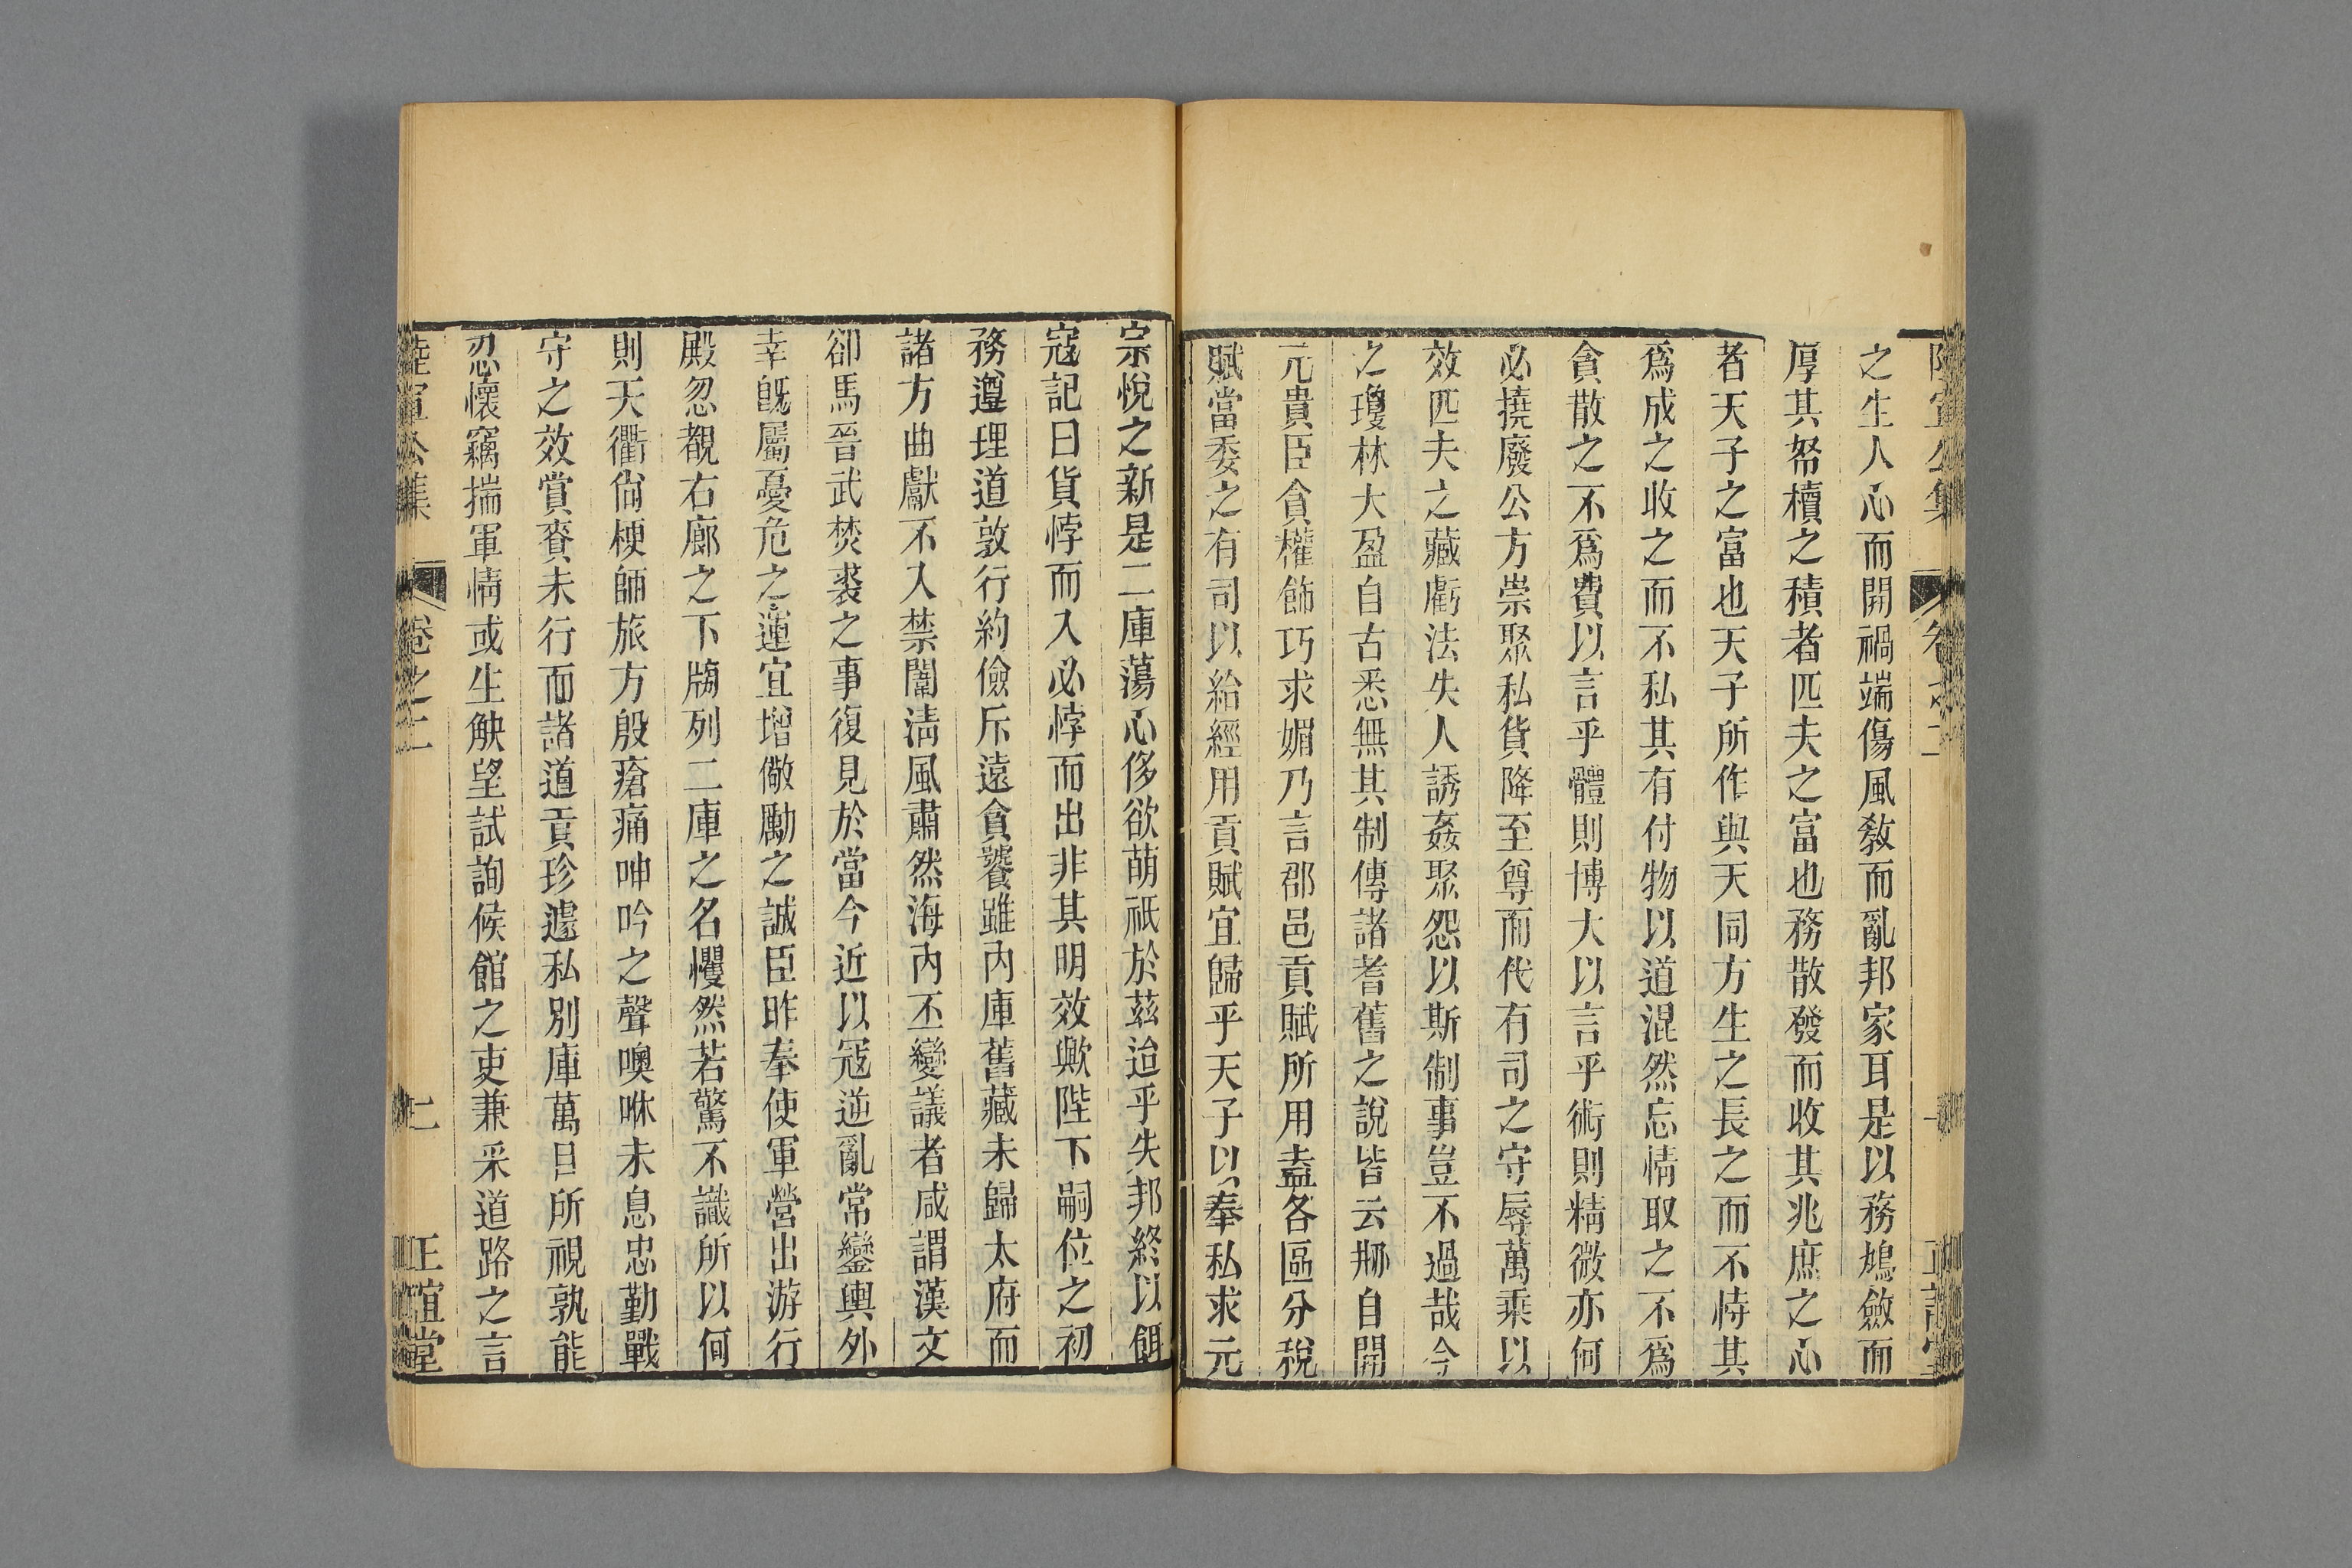 之生人心而開禍端傷風敎而亂邦家耳是以務鳩斂而
厚其帑櫝之積者匹夫之富也務散發而收其兆庶之心
者天子之富也天子所作與天同方生之長之而不恃其
爲成之收之而不私其有付物以道混然忘情取之不爲
貪散之不爲費以言乎體則博大以言乎術則精微亦何
必撓廢公方崇聚私貨降至尊而代有司之守辱萬乘以
效匹夫之藏虧法失人誘姦聚怨以斯制事豈不過哉今
之瓊林大盈自古悉無其制傳諸耆舊之說皆云刱自開
元貴臣貪權飾巧求媚乃言郡邑貢賦所用盍各區分稅
賦當委之有司以給經用貢賦宜歸乎天子以奉私求元
宗悅之新是二庫蕩心侈欲萌祇於茲迨乎失邦終以餌
寇記曰貨悖而入必悖而出非其明效歟陛下嗣位之初
務遵理道敦行約儉斥遠貪饕雖內庫舊藏未歸太府而
諸方曲獻不入禁闈淸風肅然海內丕變議者咸謂漢文
卻馬晉武焚裘之事復見於當今近以寇逆亂常鑾輿外
幸旣屬憂危之運宜增儆勵之誠臣昨奉使軍營出游行
殿忽覩右廊之下牓列二庫之名戄然若驚不識所以何
則天衢尙梗師旅方殷瘡痛呻吟之聲噢咻未息忠勤戰
守之效賞賚未行而諸道貢珍遽私別庫萬目所視孰能
忍懷竊揣軍情或生觖望試詢候館之吏兼采道路之言
陸宣公集 卷之二 七 正誼堂